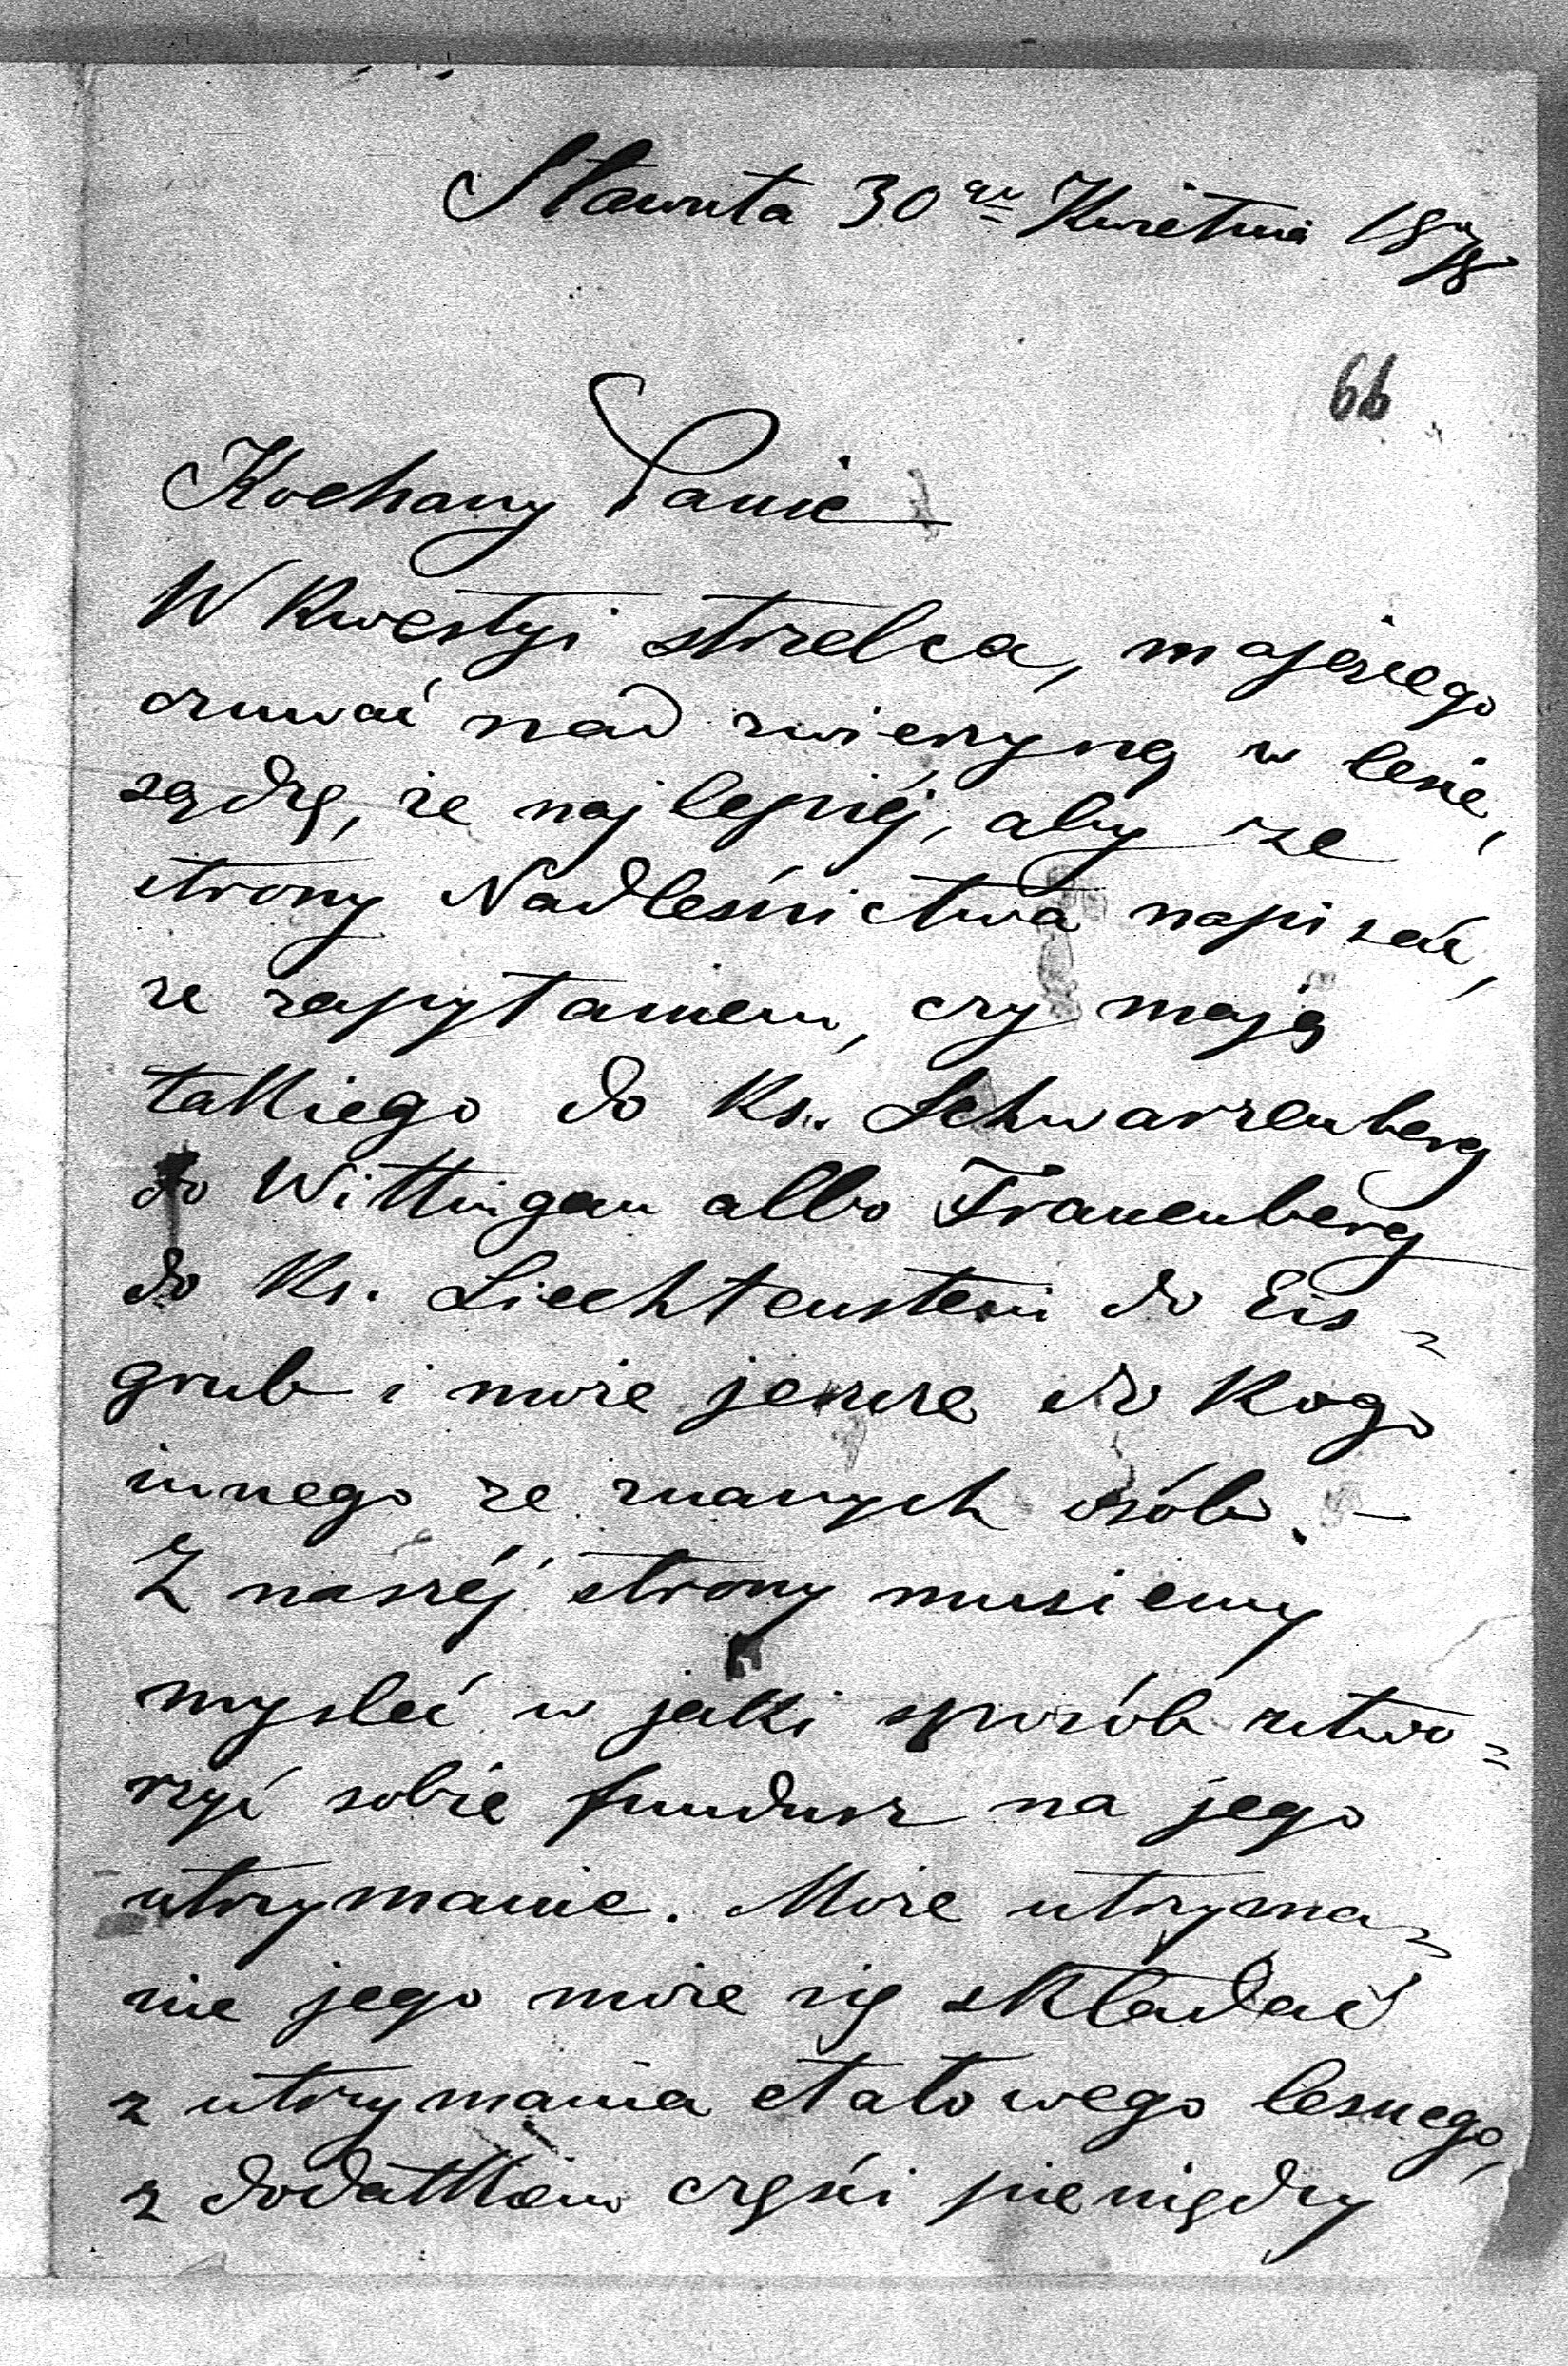 Sławuta 30go Kwietnia 1878
66
Kochany Panie
W kwestyi strzelca, mającego
czuwać nad zwierzyną w lesie,
sądzę, że najlepiéj, aby ze
strony Nadleśnictwa napisać,
ze zapytaniem, czy mają
takiego do Ks. Schwarzenberg
do Wittingau albo Frauenberg
do Ks. Liechtenstein do Eis=
grub i może jeszcze do kogo
innego ze znanych osób. —
Z naszéj strony musiemy
mysleć w jakki sposób utwo=
rzyć sobie fundusz na jego
utrzymanie. Może utrzyma=
nie jego może się składać
z utrzymania etatowego lesnego,
z dodatkiem części pieniędzy